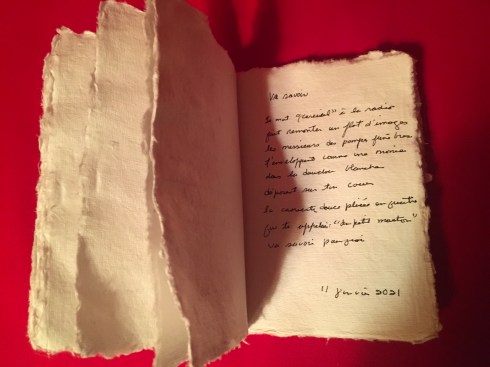 Va savoir
le mot "cercueil" à la radio
fait remonter un flot d'images
les messieurs des pompes funèbres
t'enveloppent comme une momie
dans les draps blancs
déposent sur ton coeur
la couverture douce pliée en quatre
que tu appelais "du petit mouton"
va savoir pourquoi
11 janvier 2021